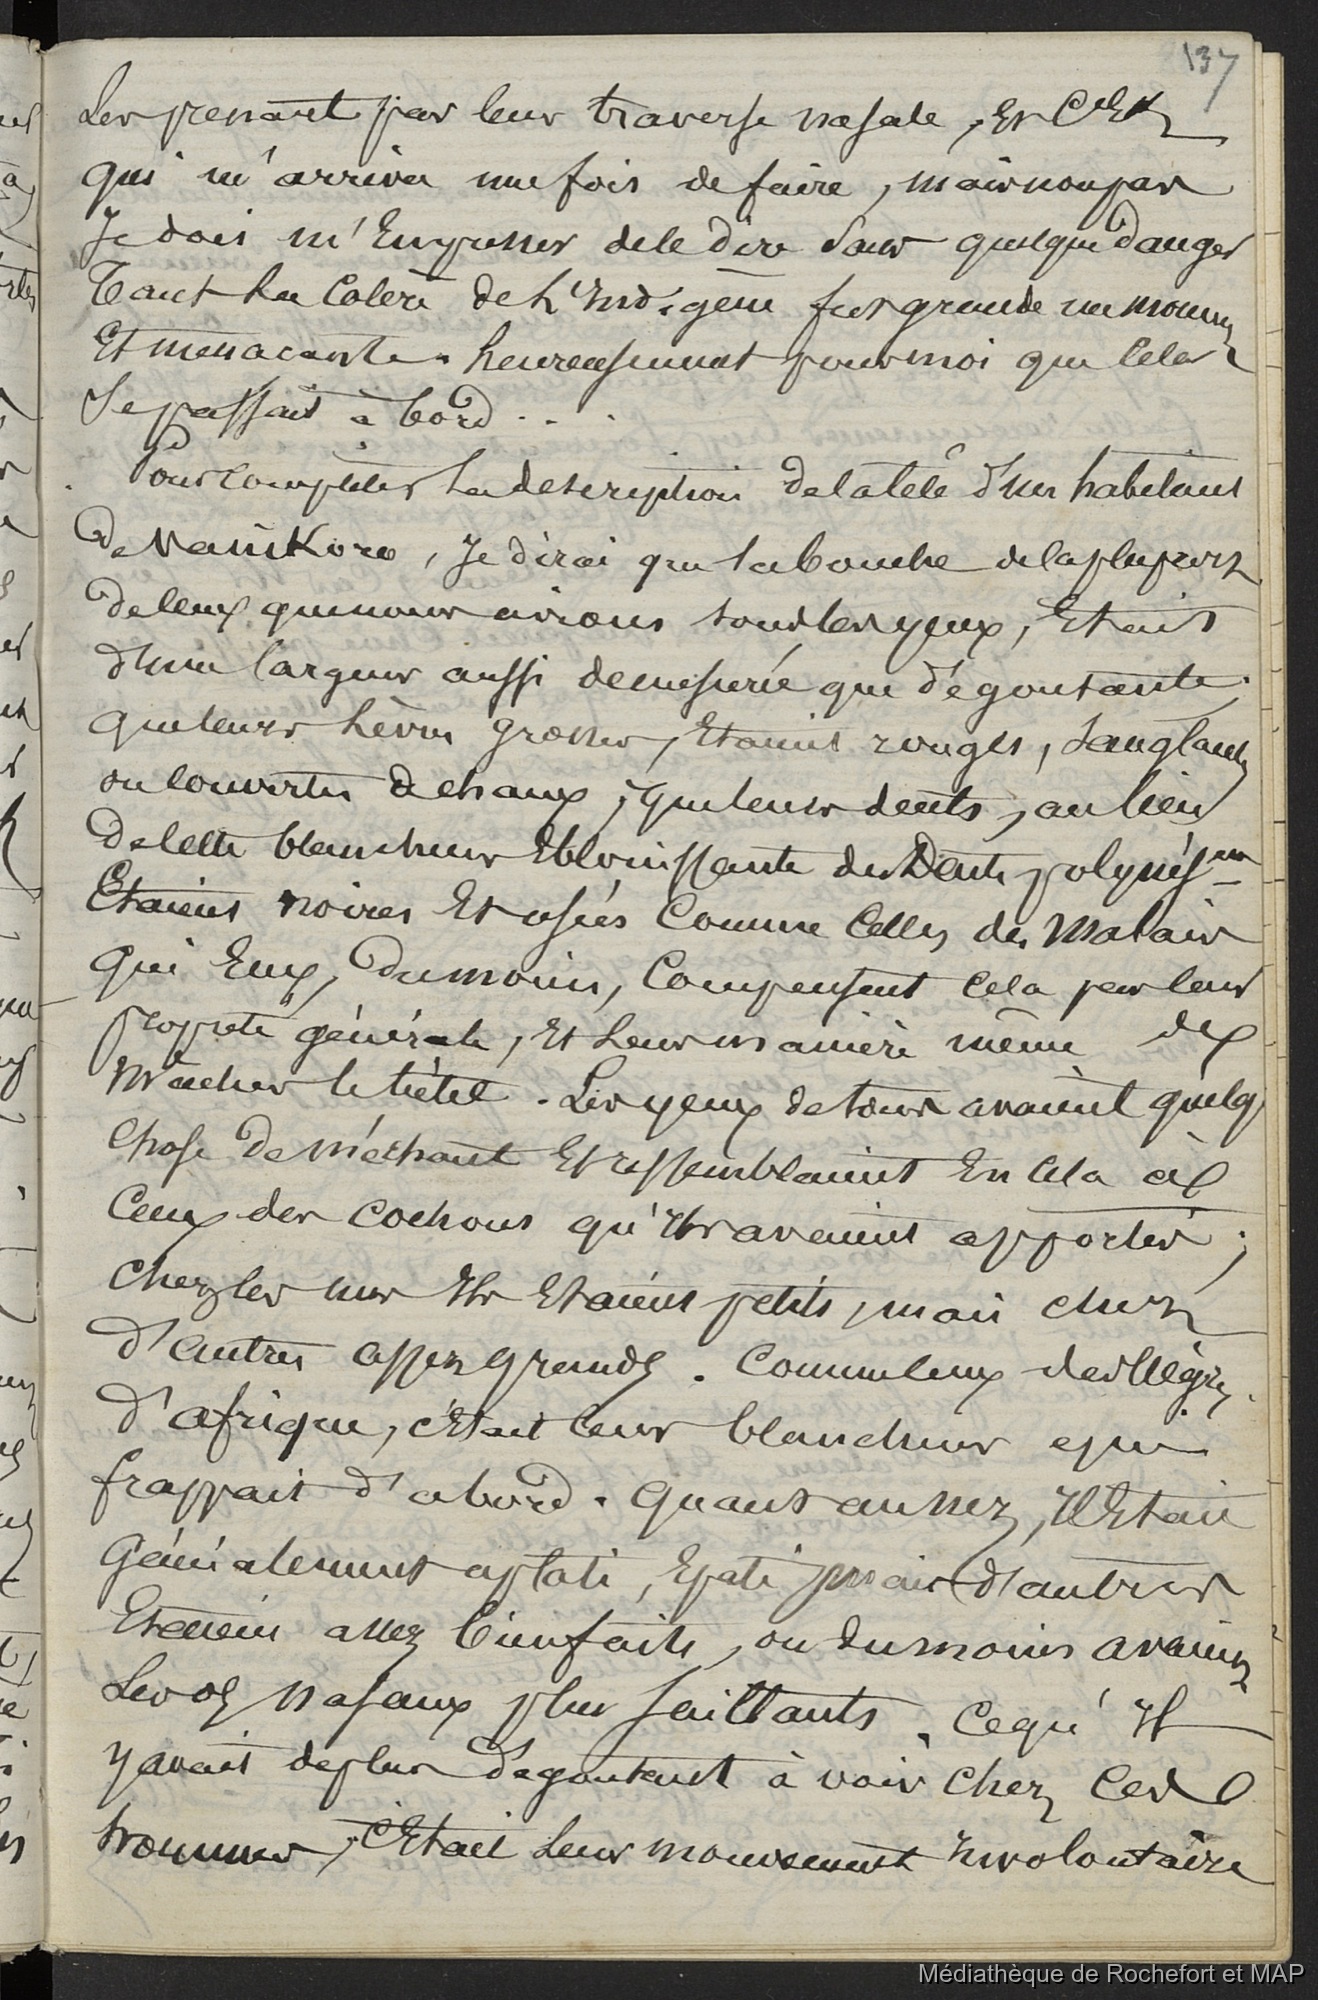 137
les prenant par leur traverse nasale, et c'est
qui m'arriva une fois de faire, mais non pas
Je dois m'empresser de le dire sans quelque danger
tant la colère de l'Indigène fut grande un moment
Et menaçante. heureusement pour moi que cela
se passait à bord...
Pour compléter la description de la tête d'un habitant
de Vanikoro, Je dirai que la bouche de la plupart
de ceux que nous avions sous les yeux, Etait
d'une largeur aussi demesurée que dégoutante;
que leurs lèvres grosses, Etaient rouges, sanglantes
ou couvertes de chaux; que leurs dents, au lieu
de cette blancheur Eblouissante des Dents polynésnes
Etaient noires Et usées Comme Celles des Malais
qui Eux, du moins, Compensent Cela par leur
propreté générale, Et leur manière même de
mâcher le bétel. Les yeux de tous avaient quelq
chose de méchant Et ressemblaient En cela à
Ceux des cochons qu'Ils avaient apportés;
chez les uns Ils Etaient petits, mais chez
d'autres assez grands. Comme ceux des Nègres
d'afrique, c'Etait leur blancheur qui
frappait d'abord. quant au nez, Il Etait
Généralement aplati, Epaté; mais d'autres
Etaient assez bien faits, ou du moins avaient
les os nasaux plus saillants. Ce qu'Il
y avait de plus dégoutant à voir chez ces
hommes, c'Etait leur mouvement Involontaire
Médiathèque de Rochefort et MAP